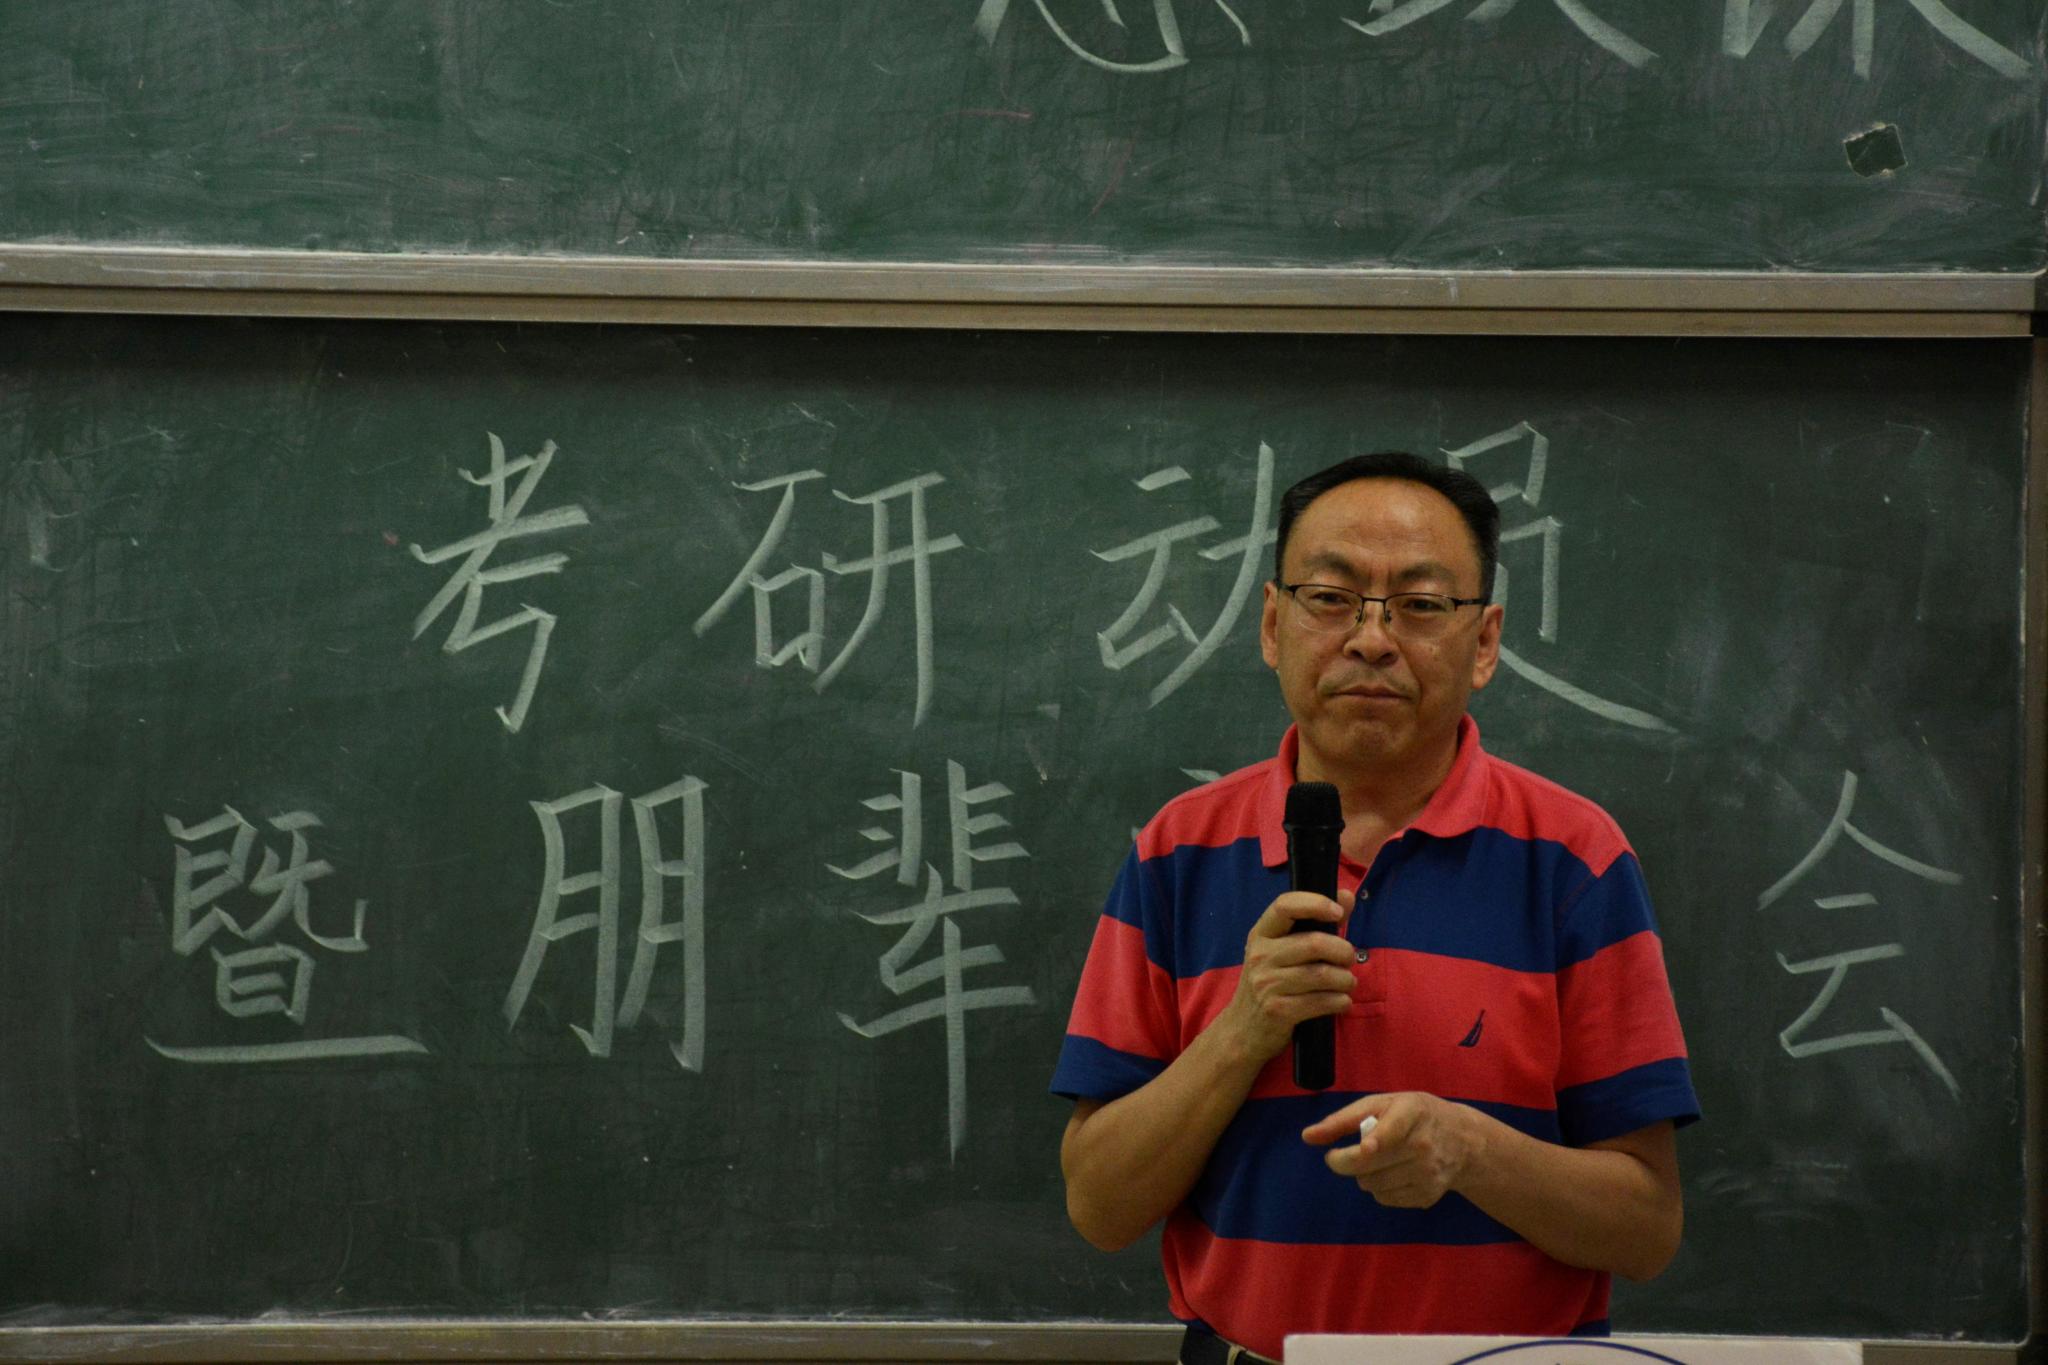 考研动员
暨朋辈 会